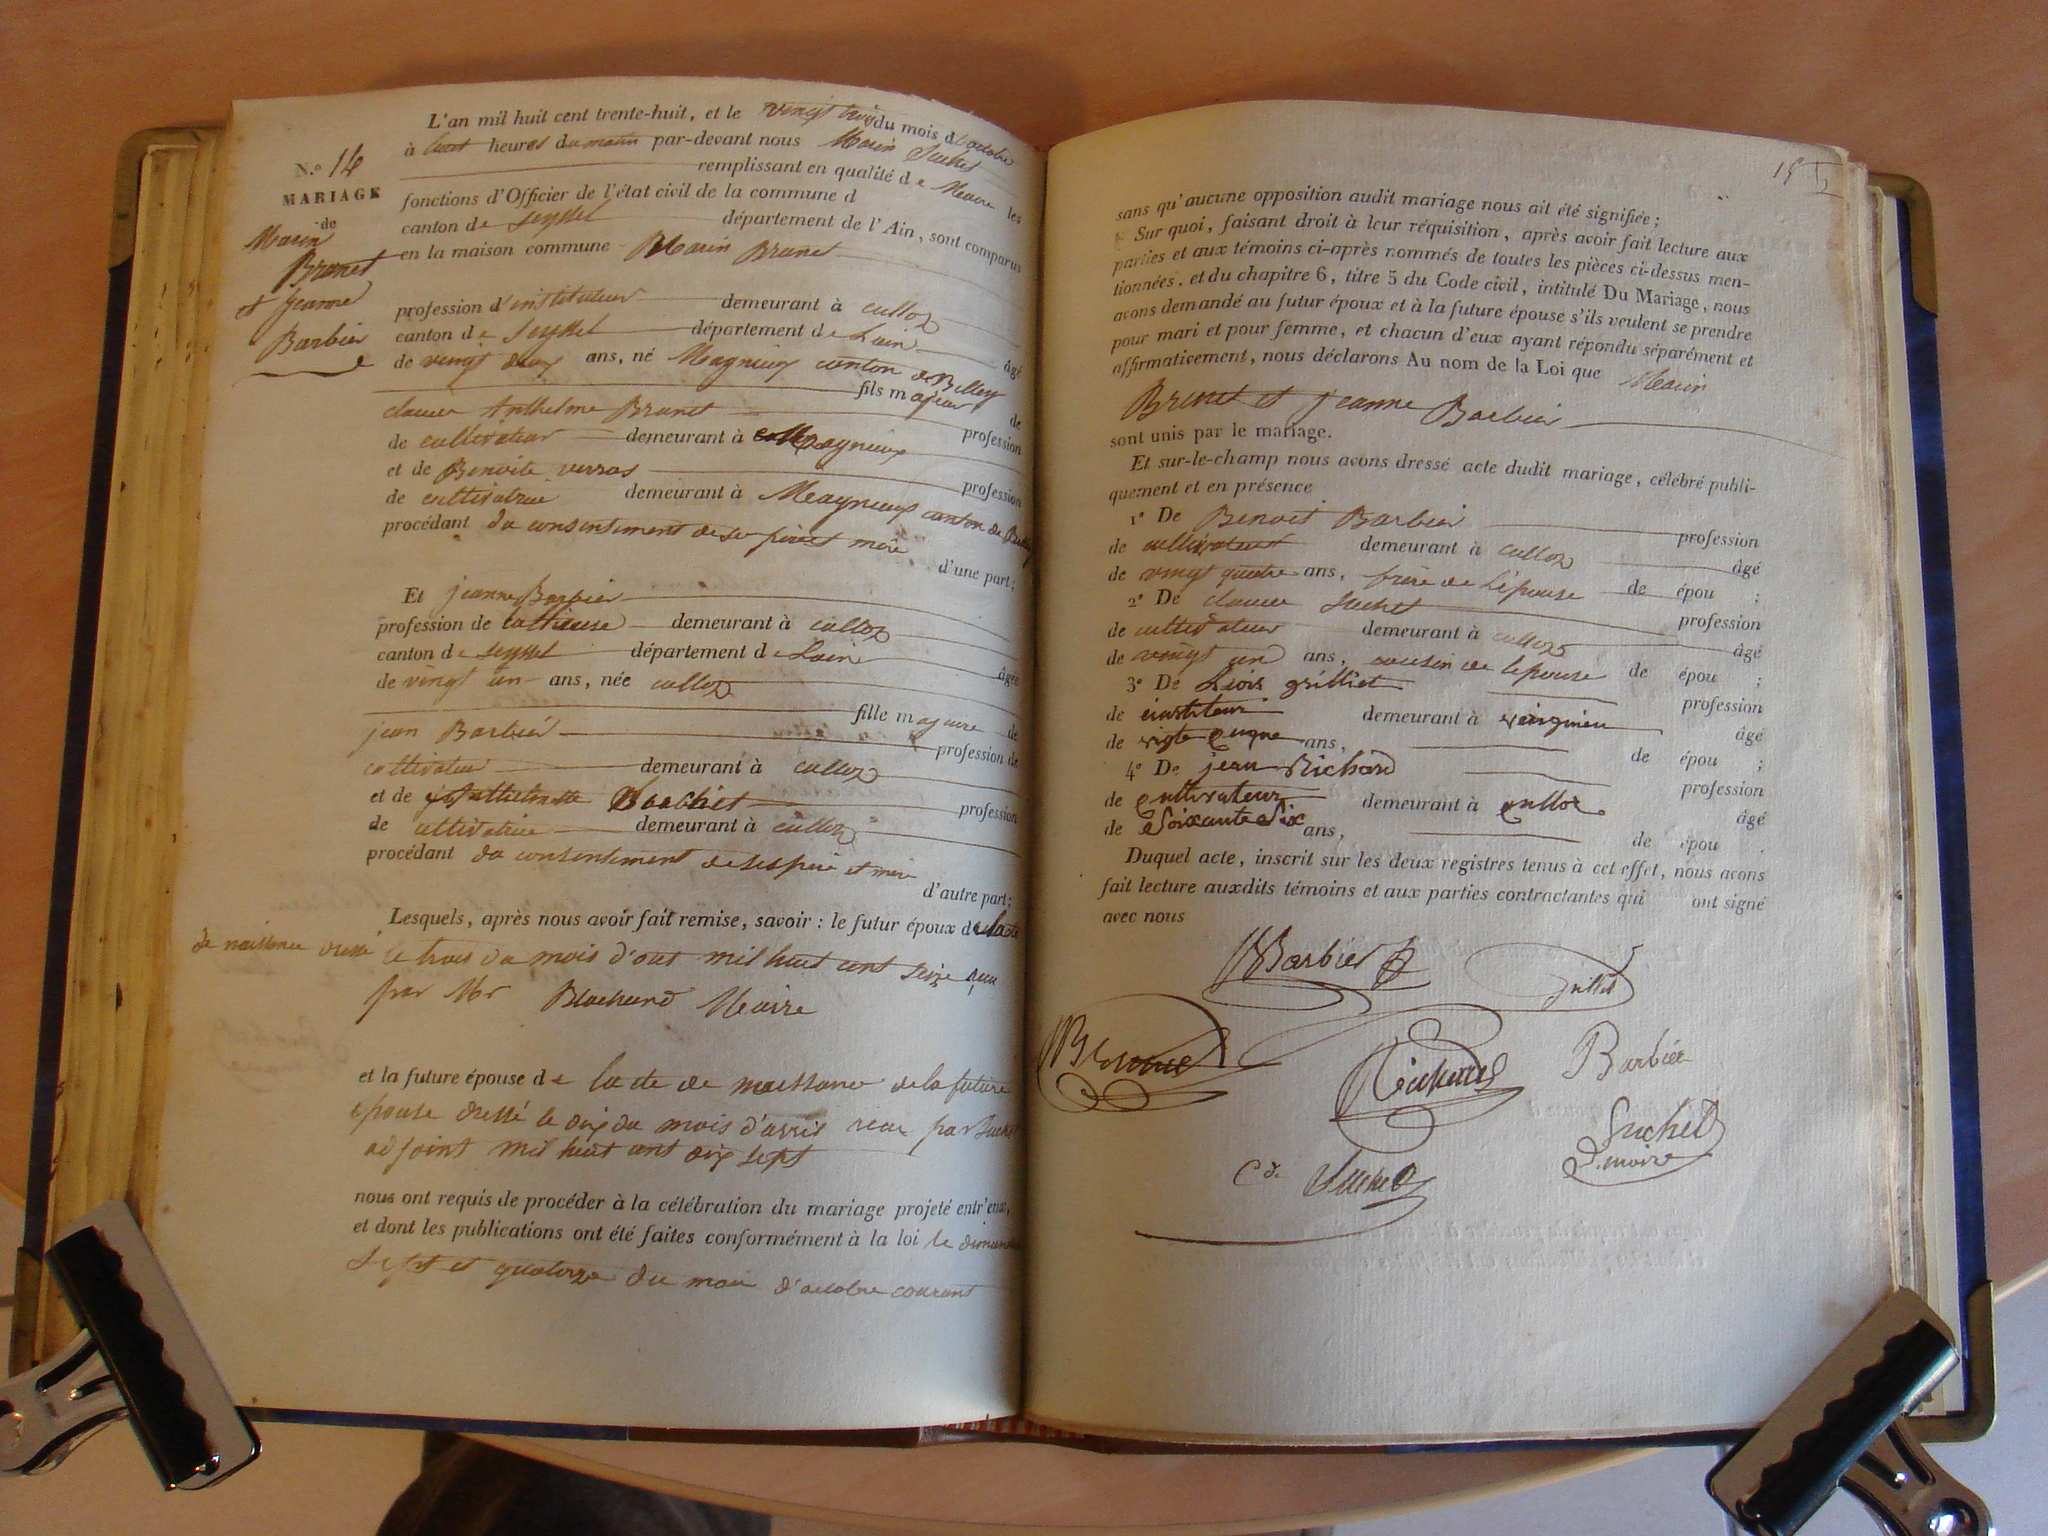 N.o 14
MARIAGE
de
Marin
Brunet
et jeanne
Barbier
L'an mil huit cent trente-huit, et le vingt trois du mois d'octobre
à huit heures du matin par-devant nous Marin Suchet
remplissant en qualité de Maire les
fonctions d'Officier de l'état civil de la commune d
canton de seyssel département de l'Ain, sont comparus
en la maison commune Marin Brunet
profession d'instituteur demeurant à culloz
canton de seyssel département de Lain âgé
de vingt deux ans, né Magnieux canton de Belley
fils majeur de
claude Anthelme Brunet profession
de cultivateur demeurant à Magnieux
et de Benoite verras profession
de cultivatrice demeurant à Magnieux canton de Belley
procédant du consentement de se père et mère
d'une part;
Et jeanne Barbier
profession de demeurant à culloz
canton de seyssel département de Lain âgée
de vingt un ans, née culloz
fille majeure de
jean Barbier profession de
cultivateur demeurant à culloz
et de profession
de cultivatrice demeurant à culloz
procédant du consentement de ses père et mère
d'autre part;
Lesquels, après nous avoir fait remise, savoir : le futur époux de lacte
de naissance dressé le trois du mois d'out mil huit cent seize
par Mr Blachard Maire
et la future épouse de lacte de naissance de la future
épouse dressé le dix du mois d'avril recu par Suchet
adjoint mil huit cent dix sept
nous ont requis de procéder à la célébration du mariage projeté entr'eux,
et dont les publications ont été faites conformément à la loi le dimanche
sept et quatorze du mois d'octobre courant
15
sans qu'aucune opposition audit mariage nous ait été signifiée;
Sur quoi, faisant droit à leur réquisition, après avoir fait lecture aux
parties et aux témoins ci-après nommés de toutes les pièces ci-dessus men-
tionnées, et du chapitre 6, titre 5 du Code civil, intitulé Du Mariage, nous
avons demandé au futur époux et à la future épouse s'ils veulent se prendre
pour mari et pour femme, et chacun d'eux ayant répondu séparément et
affirmativement, nous déclarons Au nom de la Loi que Marin
Brunet et jeanne Barbier
sont unis par le mariage.
Et sur-le-champ nous avons dressé acte dudit mariage, célébré publi-
quement et en présence
1o De Benoit Barbier profession
de cultivateur demeurant à culloz âgé
de vingt quatre ans, frère de l'épouse de épou ;
2o De claude Suchet profession
de cultivateur demeurant à culloz âgé
de vingt un ans, cousin de lépouse de épou ;
3o De Louis grilliet profession
de demeurant à âgé
de ans, de épou ;
4o De jean Richard profession
de cultivateur demeurant à culloz âgé
de soixante six ans, de épou .
Duquel acte, inscrit sur les deux registres tenus à cet effet, nous avons
fait lecture auxdits témoins et aux parties contractantes qui ont signé
avec nous
Barbier
Brunet
Richard
Barbier
Suchet
maire
Cde Suchet